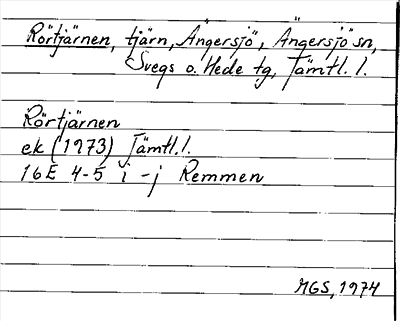 Rörtjärnen, tjärn, Ängersjö, Ängersjö sn,
Svegs o. Hede tg, Jämtl. l.
Rörtjärnen
ek (1973) Jämtl. l.
16E 4-5 i - j Remmen
MGS, 1974